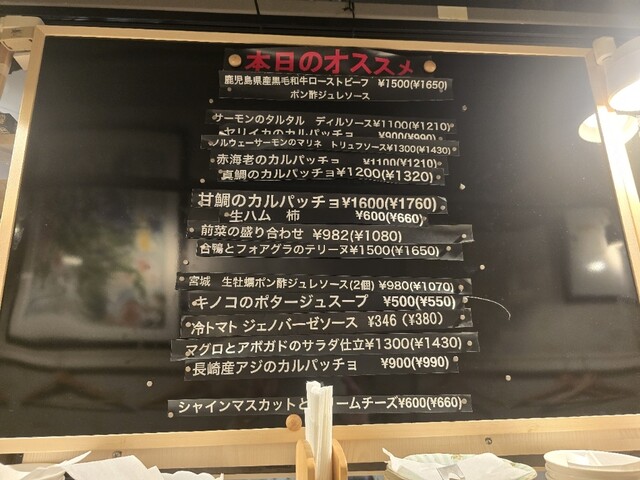 本日のオススメ
鹿児島県産黒毛和牛ローストビーフ ¥1500(¥1650)
ポン酢ジュレソース
サーモンのタルタル ディルソース¥1100(¥1210)
ヤリイカのカルパッチョ ¥900(¥990)
ノルウェーサーモンのマリネ トリュフソース¥1300(¥1430)
赤海老のカルパッチョ ¥1100(¥1210)
真鯛のカルパッチョ¥1200(¥1320)
甘鯛のカルパッチョ¥1600(¥1760)
生ハム 柿 ¥600(¥660)
前菜の盛り合わせ ¥982(¥1080)
合鴨とフォアグラのテリーヌ¥1500(¥1650)
宮城 生牡蠣ポン酢ジュレソース(2個) ¥980(¥1070)
キノコのポタージュスープ ¥500(¥550)
冷トマト ジェノバーゼソース ¥346 (¥380)
マグロとアボガドのサラダ仕立¥1300(¥1430)
長崎産アジのカルパッチョ ¥900(¥990)
シャインマスカットと ームチーズ¥600(¥660)